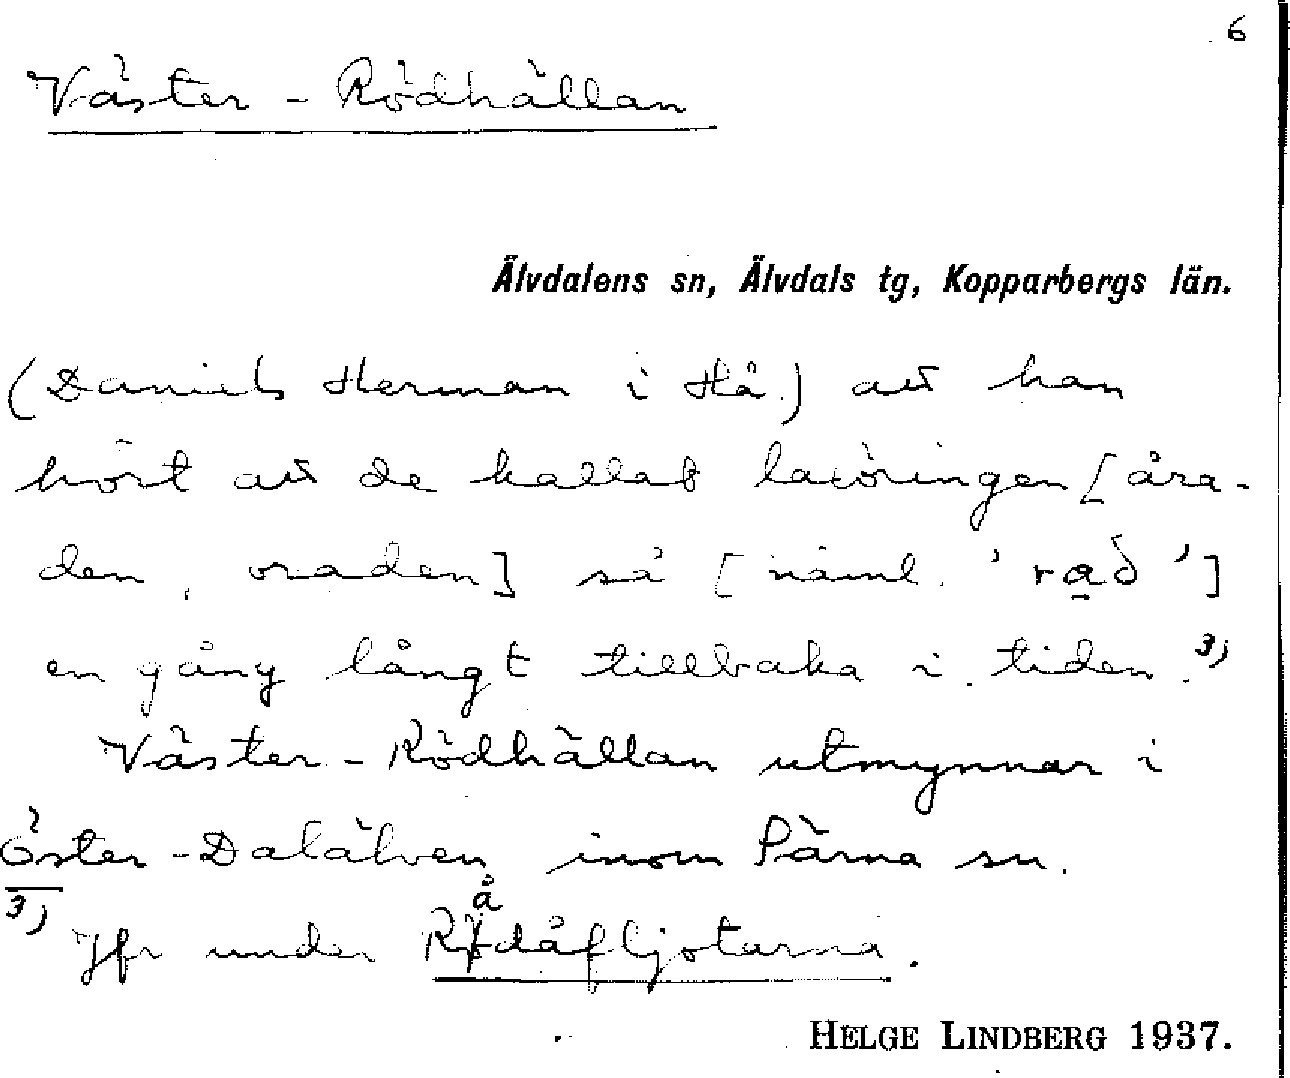 6
Väster-Rödhällan
Älvdalens sn, Älvdals tg, Kopparbergs län.
(Daniels Herman i Hå.) att han
hört att de kallat laxöringen [åra-
den, oraden] så [näml. 'rað']
en gång långt tillbaka i tiden.3)
Väster-Rödhällan utmynnar i
Öster-Dalälven inom Särna sn.
3) Jfr under Rådåfljotarna.
HELGE LINDBERG 1937.